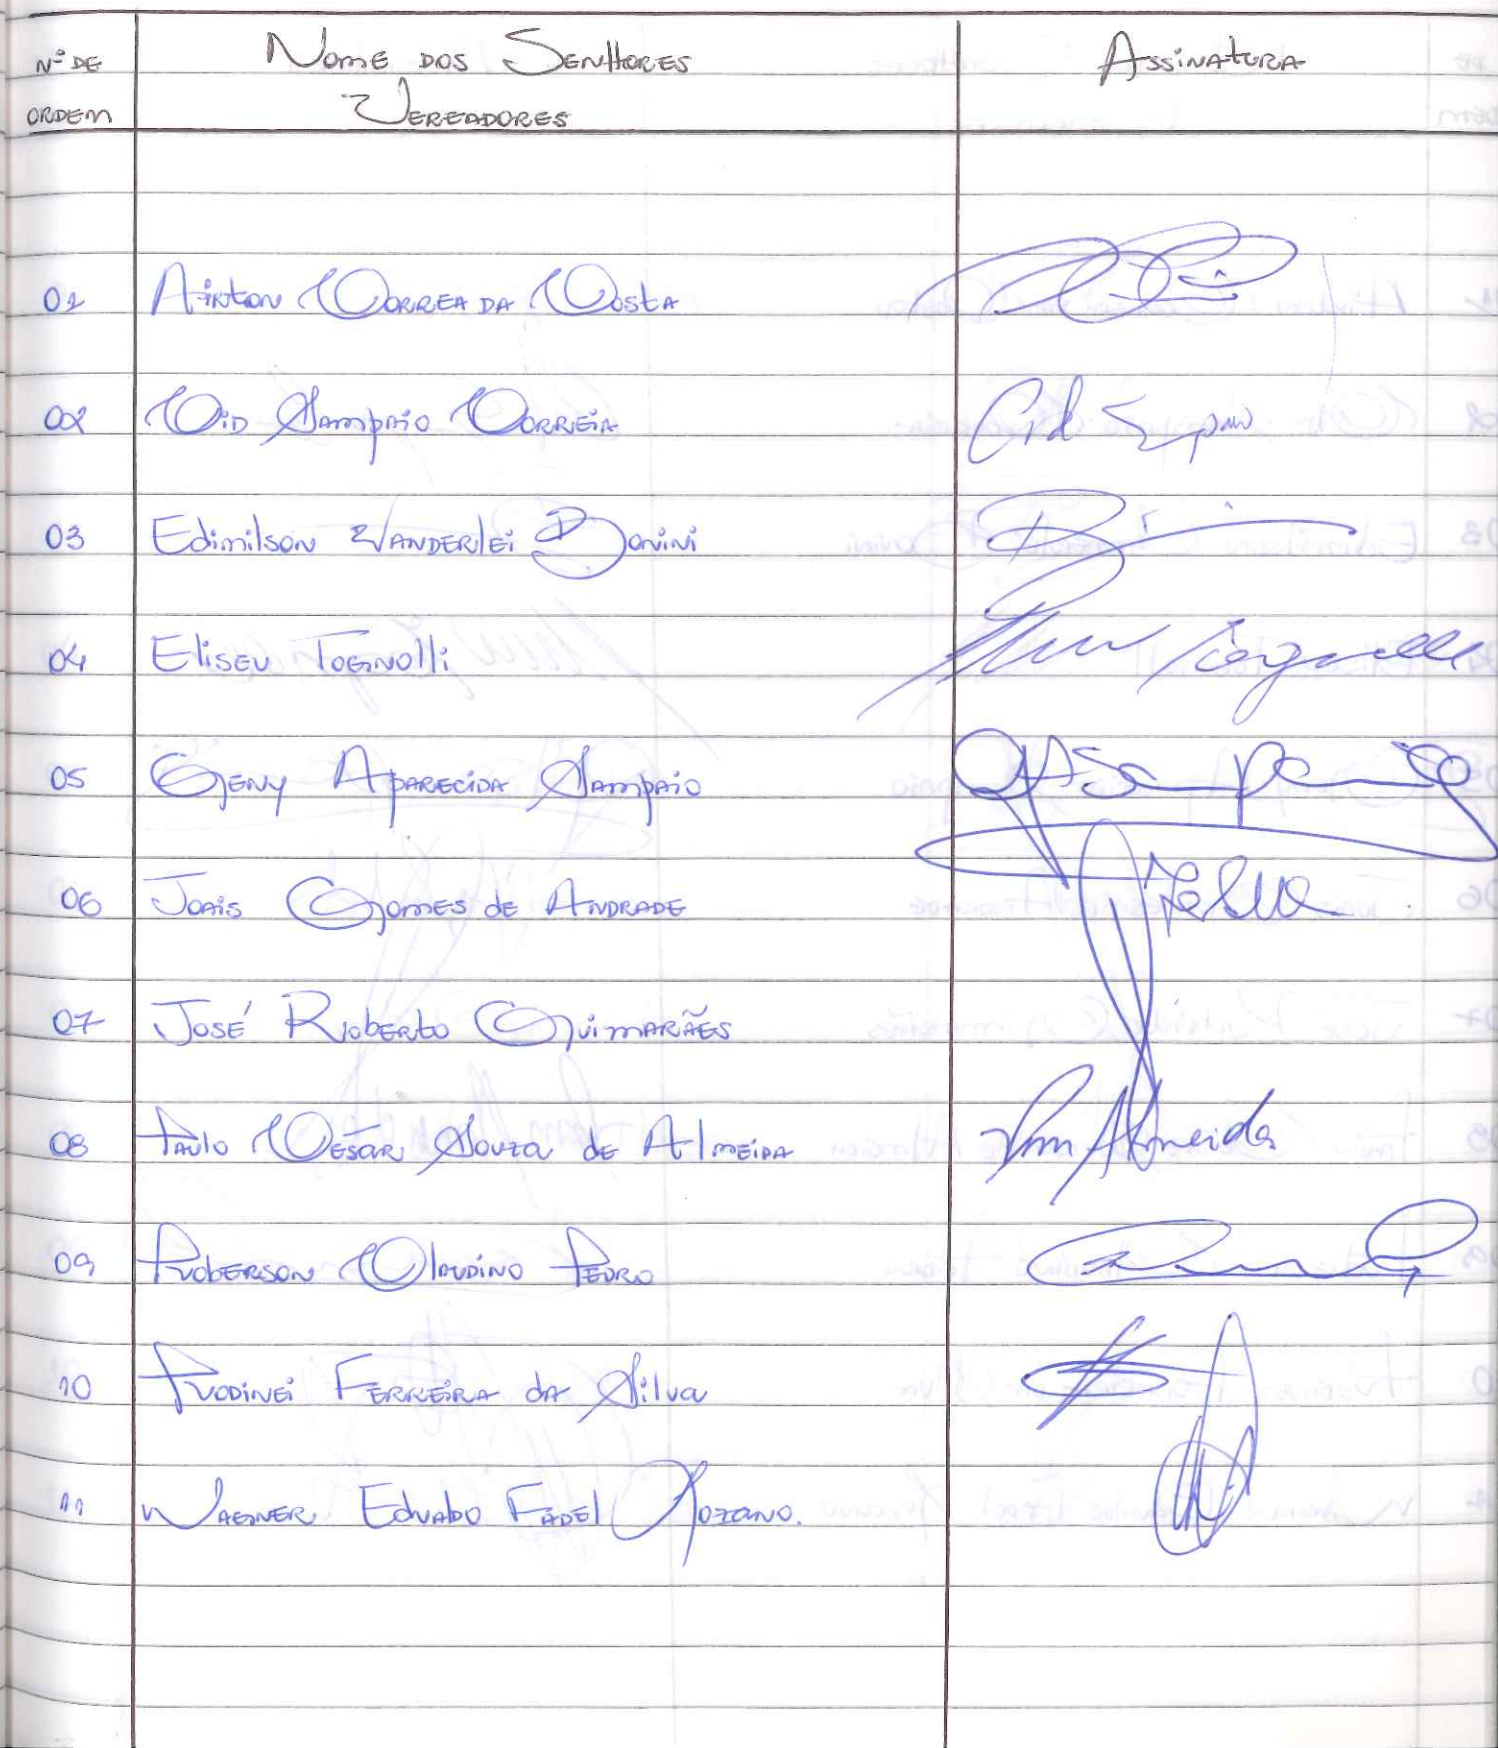 Nº DE Nome dos Senhores Assinatura
ORDEM Vereadores
01 Airton Correa da Costa
02 Cid Sampaio Correia Cid Sampaio
03 Edimilson Vanderlei Bonini
04 Eliseu Tognolli
05 Geny Aparecida Sampaio GASampaio
06 Joais Gomes de Andrade
07 José Roberto Guimarães
08 Paulo Cesar Souza de Almeida Almeida
09 Roberson Claudino Pedro
10 Rodinei Ferreira da Silva
11 Wagner Eduardo Fadel Lozano.